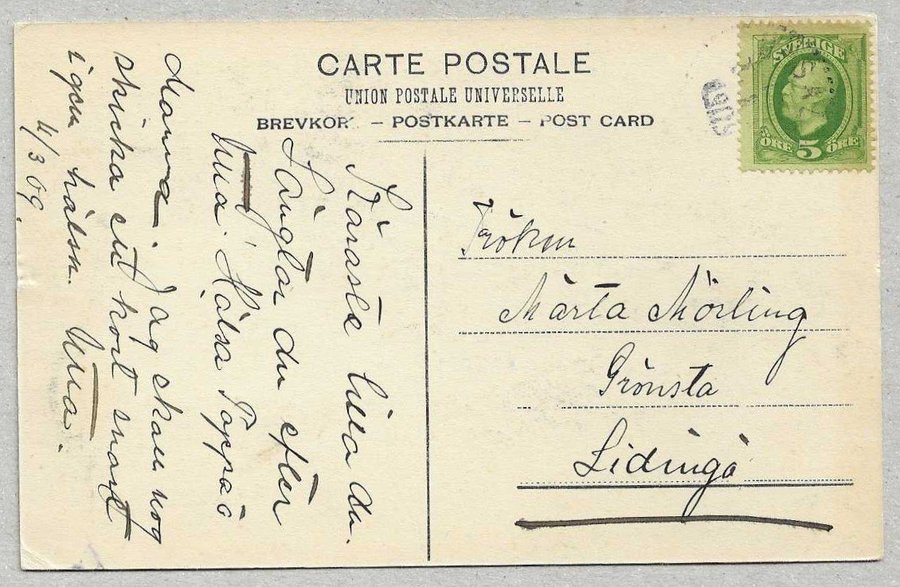 CARTE POSTALE
UNION POSTALE UNIVERSELLE
BREVKOR – POSTKARTE – POST CARD
SVERIGE
ÖRE 5 ÖRE
Käraste lilla du.
Längtar du efter
Ulla. Hälsa Pappa o
Mamma. Jag skall nog
skicka ett kort snart
igen hälsn. Ulla.
4/3 09.
Fröken
Märta Mörling
Grönsta
Lidingö